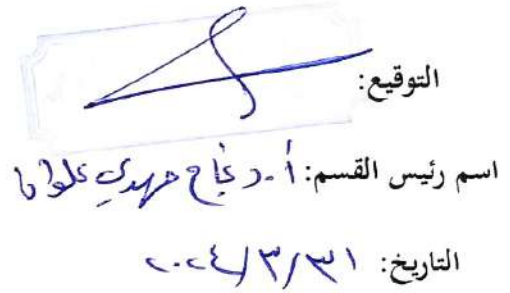 التوقيع:
اسم رئيس القسم: أ.د نجاح مهدي علوان
التاريخ: ٣١/٣/٢٠٢٤